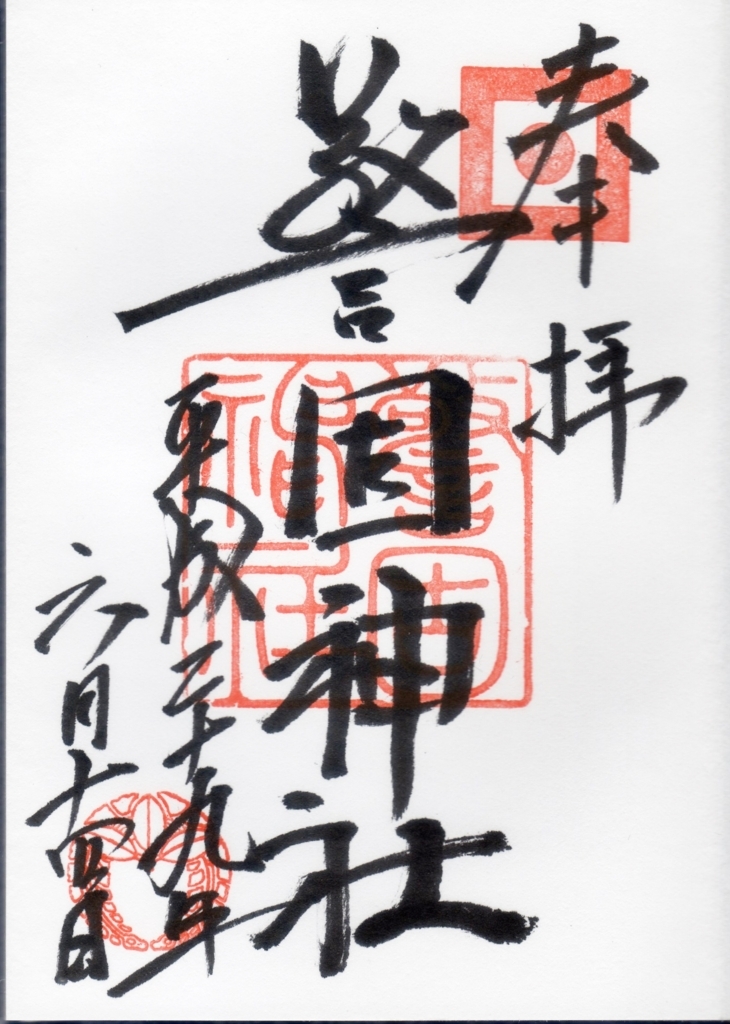 奉拝
警固神社
平成二十九年
六月十四日